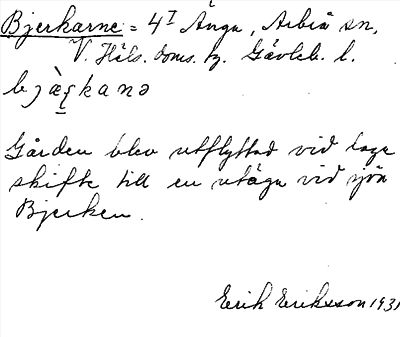 Bjerkarne = 4 I Änga, Arbrå sn,
V. Häls. doms. tg. Gävleb. l.
bjæ̀r̥kanə
Gården blev utflyttad vid laga
skifte till en utäga vid sjön
Bjerken.
Erik Eriksson 1931